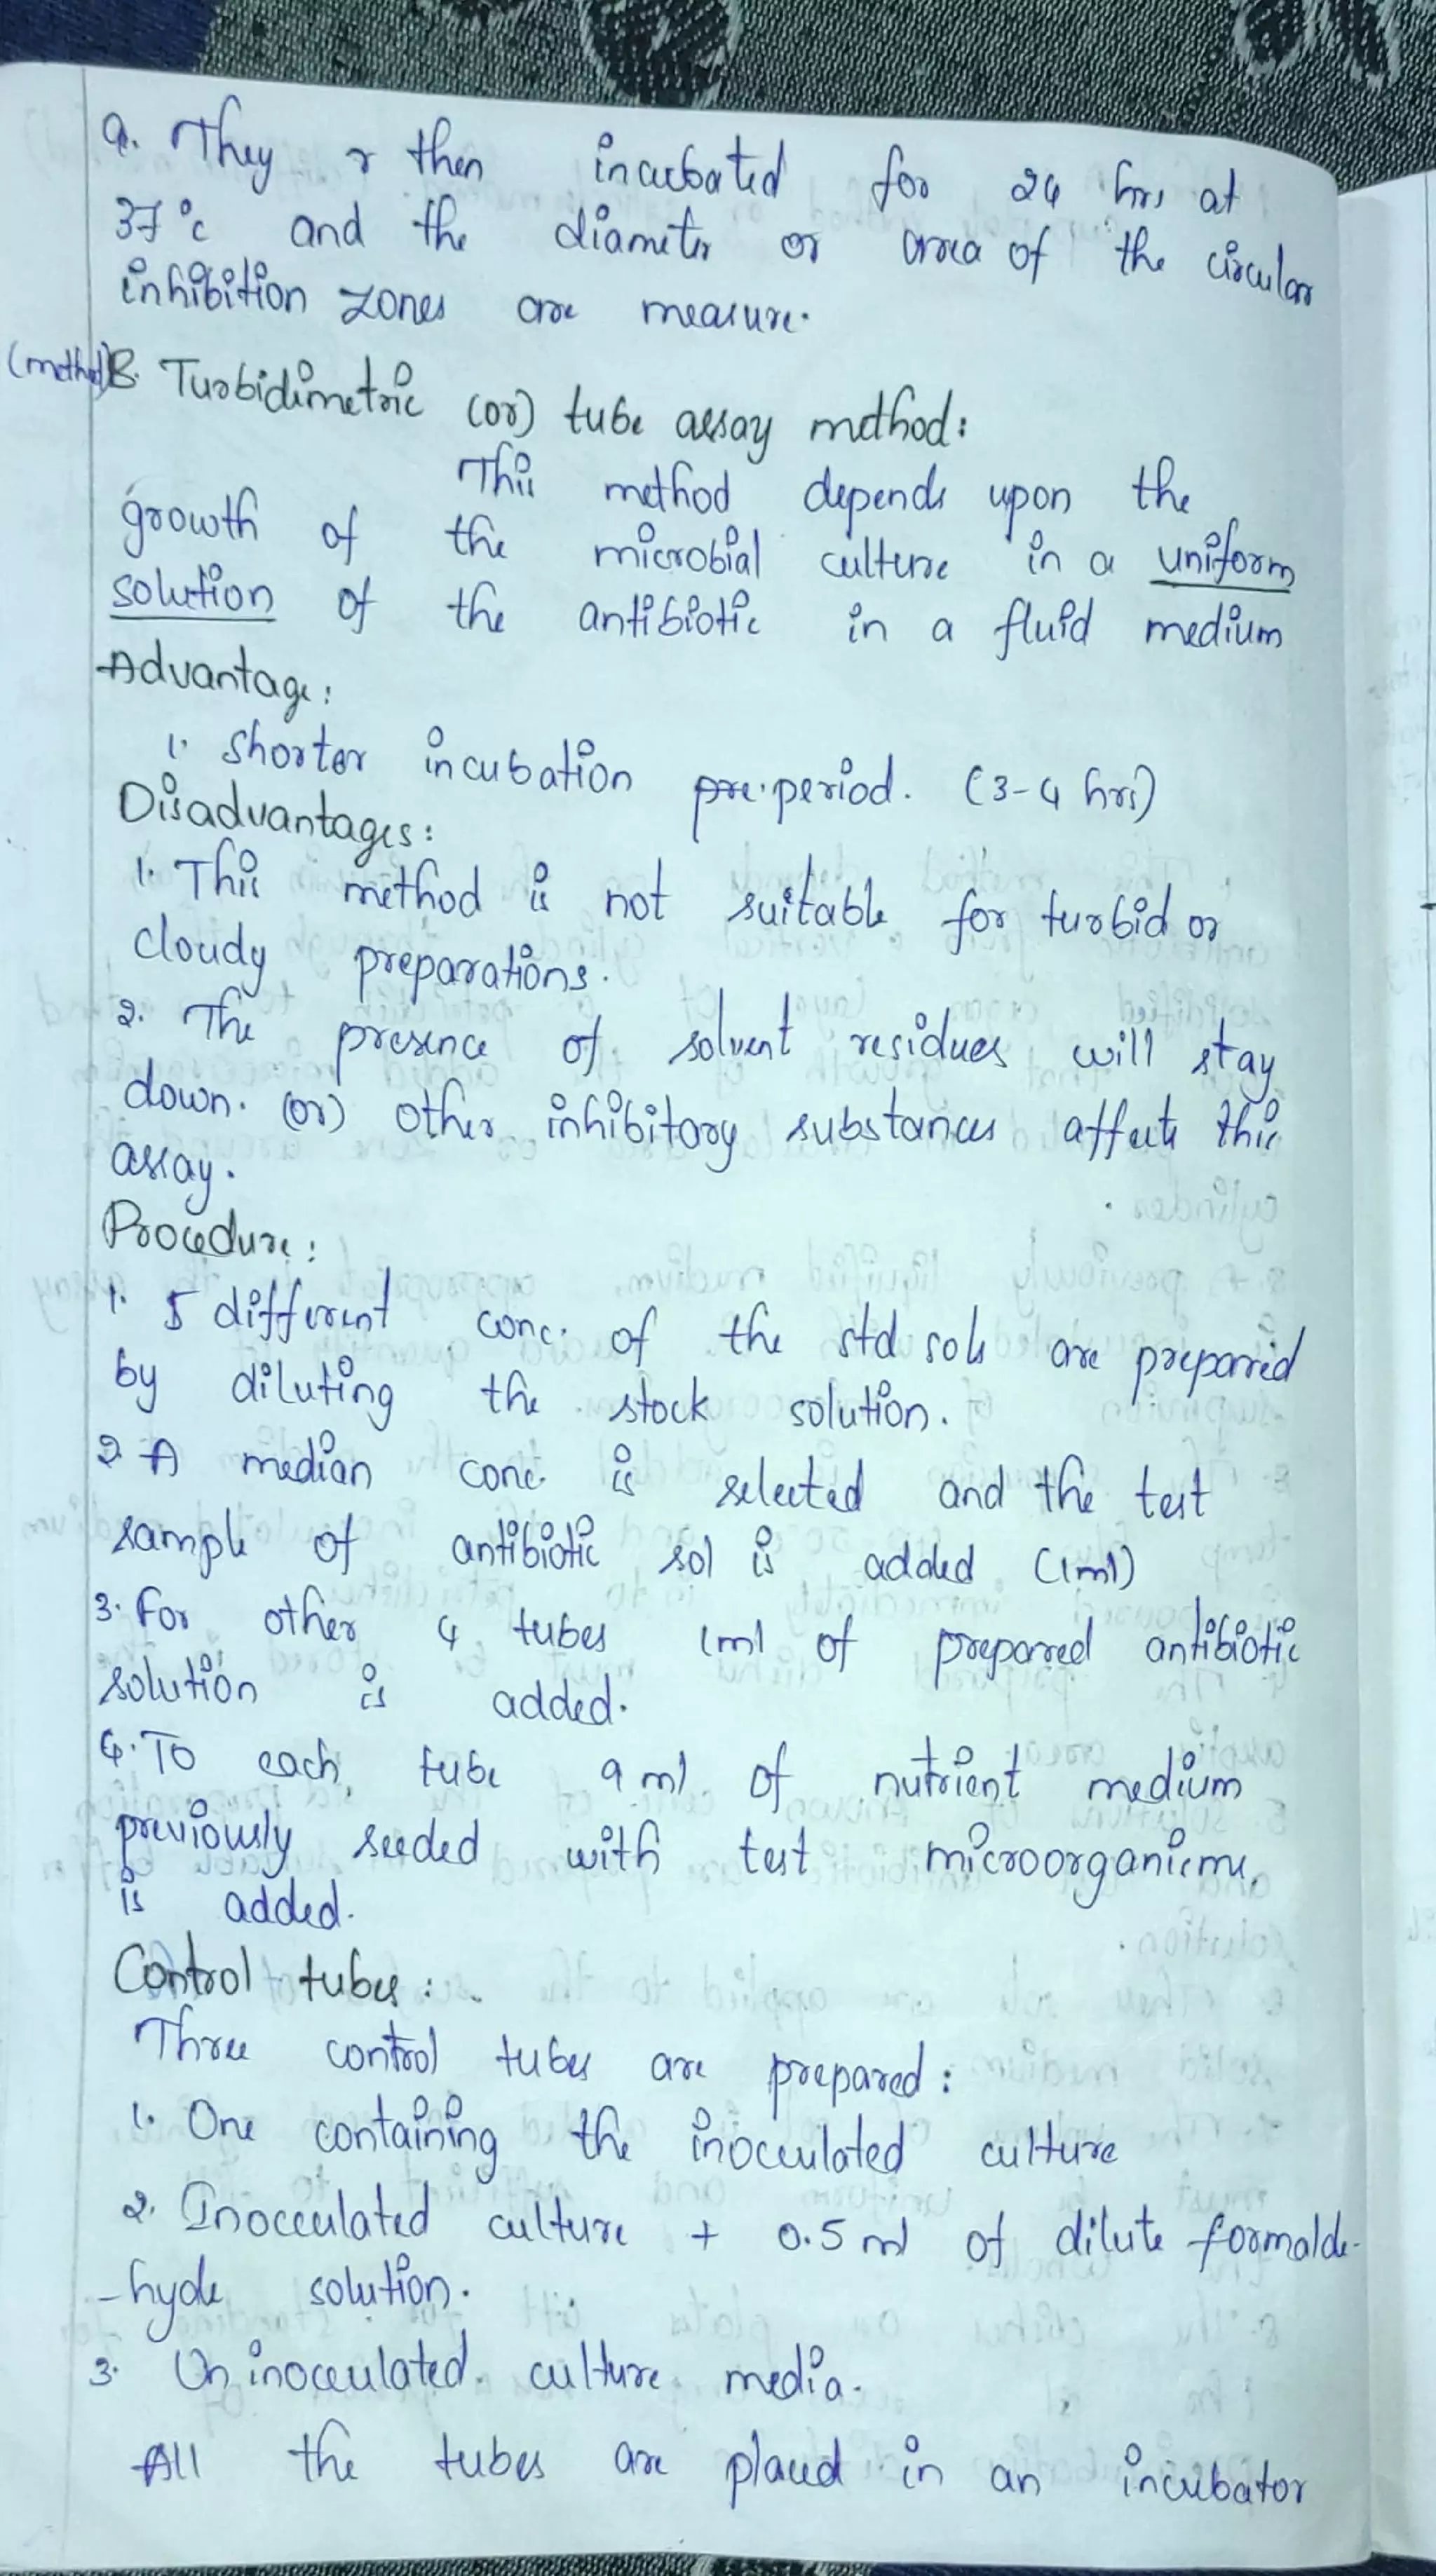 9. They r then incubated for 24 hrs at
37°c and the diameter or area of the circular
inhibition zones are measure.
(method)B. Turbidimetric (or) tube assay method:
This method depends upon the
growth of the microbial culture in a uniform
solution of the antibiotic in a fluid medium
Advantage:
1. Shorter incubation pre.period. (3-4 hrs)
Disadvantages:
1. This method is not suitable for turbid or
cloudy preparations.
2. The presence of solvent residues will stay
down. (or) other inhibitory substances affects this
assay.
Procedure:
1. 5 different conc. of the std sols are prepared
by diluting the stock solution.
2 A median conc. is selected and the test
sample of antibiotic sol is added (1ml)
3. For other 4 tubes 1ml of prepared antibiotic
solution is added.
4. To each, tube 9 ml of nutrient medium
previously seeded with test microorganisms,
is added.
Control tubes:
Three control tubes are prepared:
1. One containing the inocculated culture
2. Inocculated culture + 0.5 ml of dilute formalde-
-hyde solution.
3. Un inocculated. culture media.
All the tubes are placed in an incubator